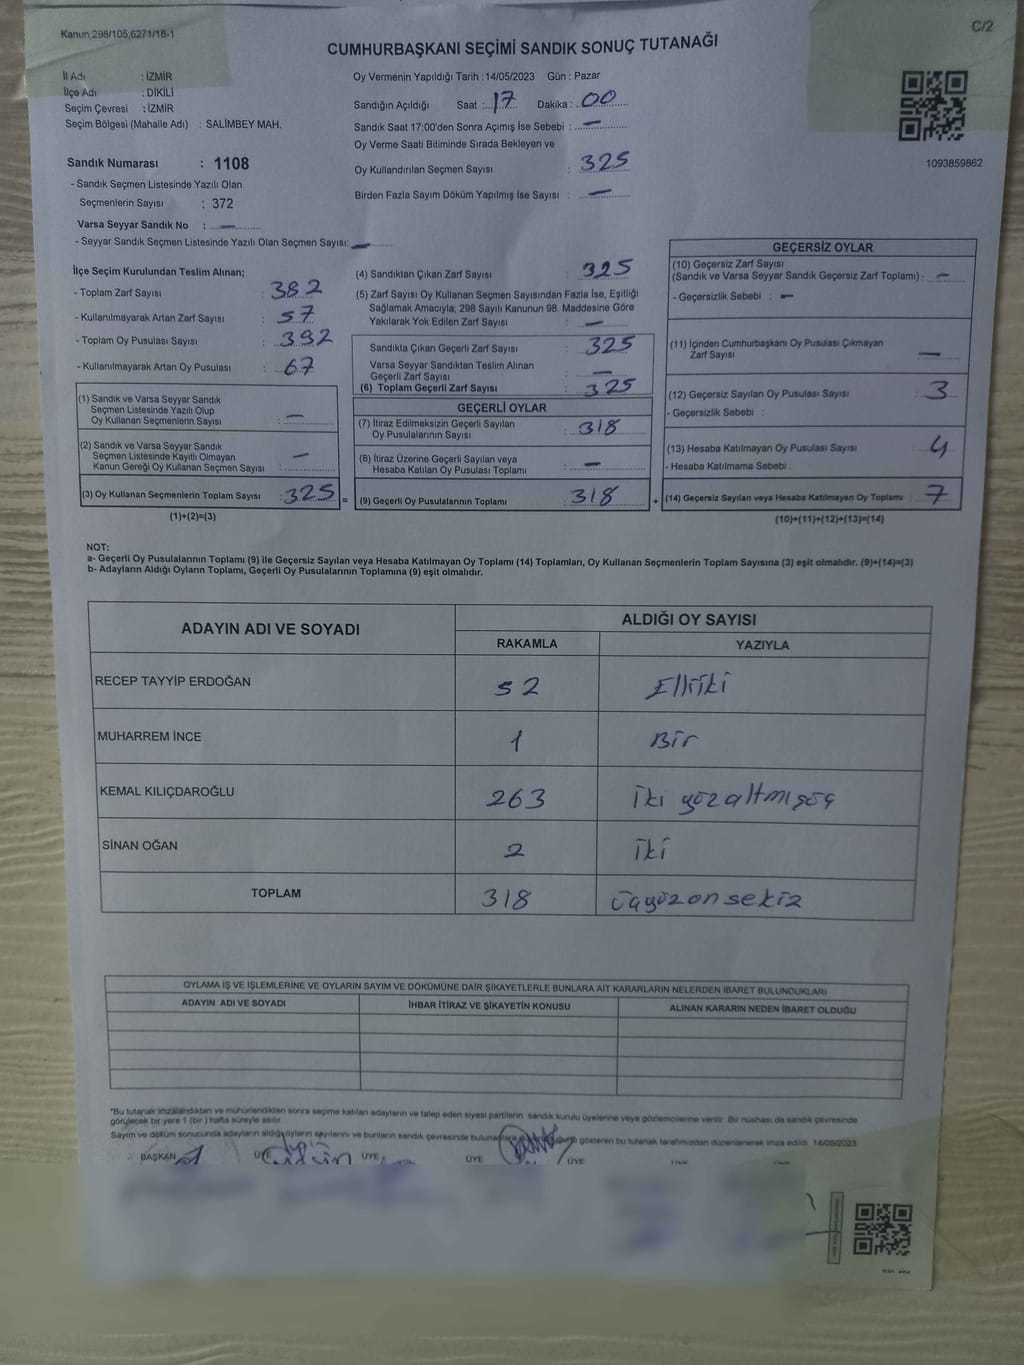 Kanun;298/105,6271/18-1
C/2
CUMHURBAŞKANI SEÇİMİ SANDIK SONUÇ TUTANAĞI
İl Adı : İZMİR
İlçe Adı : DİKİLİ
Seçim Çevresi : İZMİR
Seçim Bölgesi (Mahalle Adı) : SALİMBEY MAH.
Sandık Numarası : 1108
- Sandık Seçmen Listesinde Yazılı Olan
Seçmenlerin Sayısı : 372
Varsa Seyyar Sandık No : —
- Seyyar Sandık Seçmen Listesinde Yazılı Olan Seçmen Sayısı: —
Oy Vermenin Yapıldığı Tarih : 14/05/2023 Gün : Pazar
Sandığın Açıldığı Saat : 17 Dakika : 00
Sandık Saat 17:00'den Sonra Açımış İse Sebebi : —
Oy Verme Saati Bitiminde Sırada Bekleyen ve
Oy Kullandırılan Seçmen Sayısı : 325
Birden Fazla Sayım Döküm Yapılmış İse Sayısı : —
1093859862
İlçe Seçim Kurulundan Teslim Alınan;
- Toplam Zarf Sayısı : 382
- Kullanılmayarak Artan Zarf Sayısı : 57
- Toplam Oy Pusulası Sayısı : 392
- Kullanılmayarak Artan Oy Pusulası : 67
(1) Sandık ve Varsa Seyyar Sandık
Seçmen Listesinde Yazılı Olup
Oy Kullanan Seçmenlerin Sayısı : —
(2) Sandık ve Varsa Seyyar Sandık
Seçmen Listesinde Kayıtlı Olmayan
Kanun Gereği Oy Kullanan Seçmen Sayısı : —
(3) Oy Kullanan Seçmenlerin Toplam Sayısı : 325 =
(1)+(2)=(3)
(4) Sandıktan Çıkan Zarf Sayısı : 325
(5) Zarf Sayısı Oy Kullanan Seçmen Sayısından Fazla İse, Eşitliği
Sağlamak Amacıyla, 298 Sayılı Kanunun 98. Maddesine Göre
Yakılarak Yok Edilen Zarf Sayısı : —
Sandıkta Çıkan Geçerli Zarf Sayısı : 325
Varsa Seyyar Sandıktan Teslim Alınan
Geçerli Zarf Sayısı : —
(6) Toplam Geçerli Zarf Sayısı : 325
GEÇERLİ OYLAR
(7) İtiraz Edilmeksizin Geçerli Sayılan
Oy Pusulalarının Sayısı : 318
(8) İtiraz Üzerine Geçerli Sayılan veya
Hesaba Katılan Oy Pusulası Toplamı : —
(9) Geçerli Oy Pusulalarının Toplamı : 318 +
GEÇERSİZ OYLAR
(10) Geçersiz Zarf Sayısı
(Sandık ve Varsa Seyyar Sandık Geçersiz Zarf Toplamı) : —
- Geçersizlik Sebebi : —
(11) İçinden Cumhurbaşkanı Oy Pusulası Çıkmayan
Zarf Sayısı —
(12) Geçersiz Sayılan Oy Pusulası Sayısı : 3
- Geçersizlik Sebebi :
(13) Hesaba Katılmayan Oy Pusulası Sayısı : 4
- Hesaba Katılmama Sebebi :
(14) Geçersiz Sayılan veya Hesaba Katılmayan Oy Toplamı : 7
(10)+(11)+(12)+(13)=(14)
NOT:
a- Geçerli Oy Pusulalarının Toplamı (9) ile Geçersiz Sayılan veya Hesaba Katılmayan Oy Toplamı (14) Toplamları, Oy Kullanan Seçmenlerin Toplam Sayısına (3) eşit olmalıdır. (9)+(14)=(3)
b- Adayların Aldığı Oyların Toplamı, Geçerli Oy Pusulalarının Toplamına (9) eşit olmalıdır.
ADAYIN ADI VE SOYADI
ALDIĞI OY SAYISI
RAKAMLA YAZIYLA
RECEP TAYYİP ERDOĞAN 52 Elliiki
MUHARREM İNCE 1 Bir
KEMAL KILIÇDAROĞLU 263 iki yüzaltmışüç
SİNAN OĞAN 2 iki
TOPLAM 318 üçyüzonsekiz
OYLAMA İŞ VE İŞLEMLERİNE VE OYLARIN SAYIM VE DÖKÜMÜNE DAİR ŞİKAYETLERLE BUNLARA AİT KARARLARIN NELERDEN İBARET BULUNDUKLARI
ADAYIN ADI VE SOYADI İHBAR İTİRAZ VE ŞİKAYETİN KONUSU ALINAN KARARIN NEDEN İBARET OLDUĞU
*Bu tutanak imzalandıktan ve mühürlendikten sonra seçime katılan adayların ve talep eden siyasi partilerin sandık kurulu üyelerine veya gözlemcilerine verilir. Bir nüshası da sandık çevresinde
görülecek bir yere 1 (bir) hafta süreyle asılır.
Sayım ve döküm sonucunda adayların aldığı oyların sayılarını ve bunların sandık çevresinde gösteren bu tutanak tarafımızdan düzenlenerek imza edildi. 14/05/2023
BAŞKAN ÜYE ÜYE ÜYE ÜYE ÜYE ÜYE